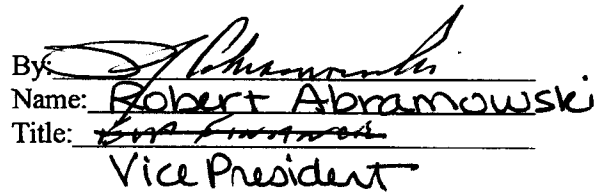 By:
Name: Robert Abramowski
Title: EVP FINANCE
Vice President